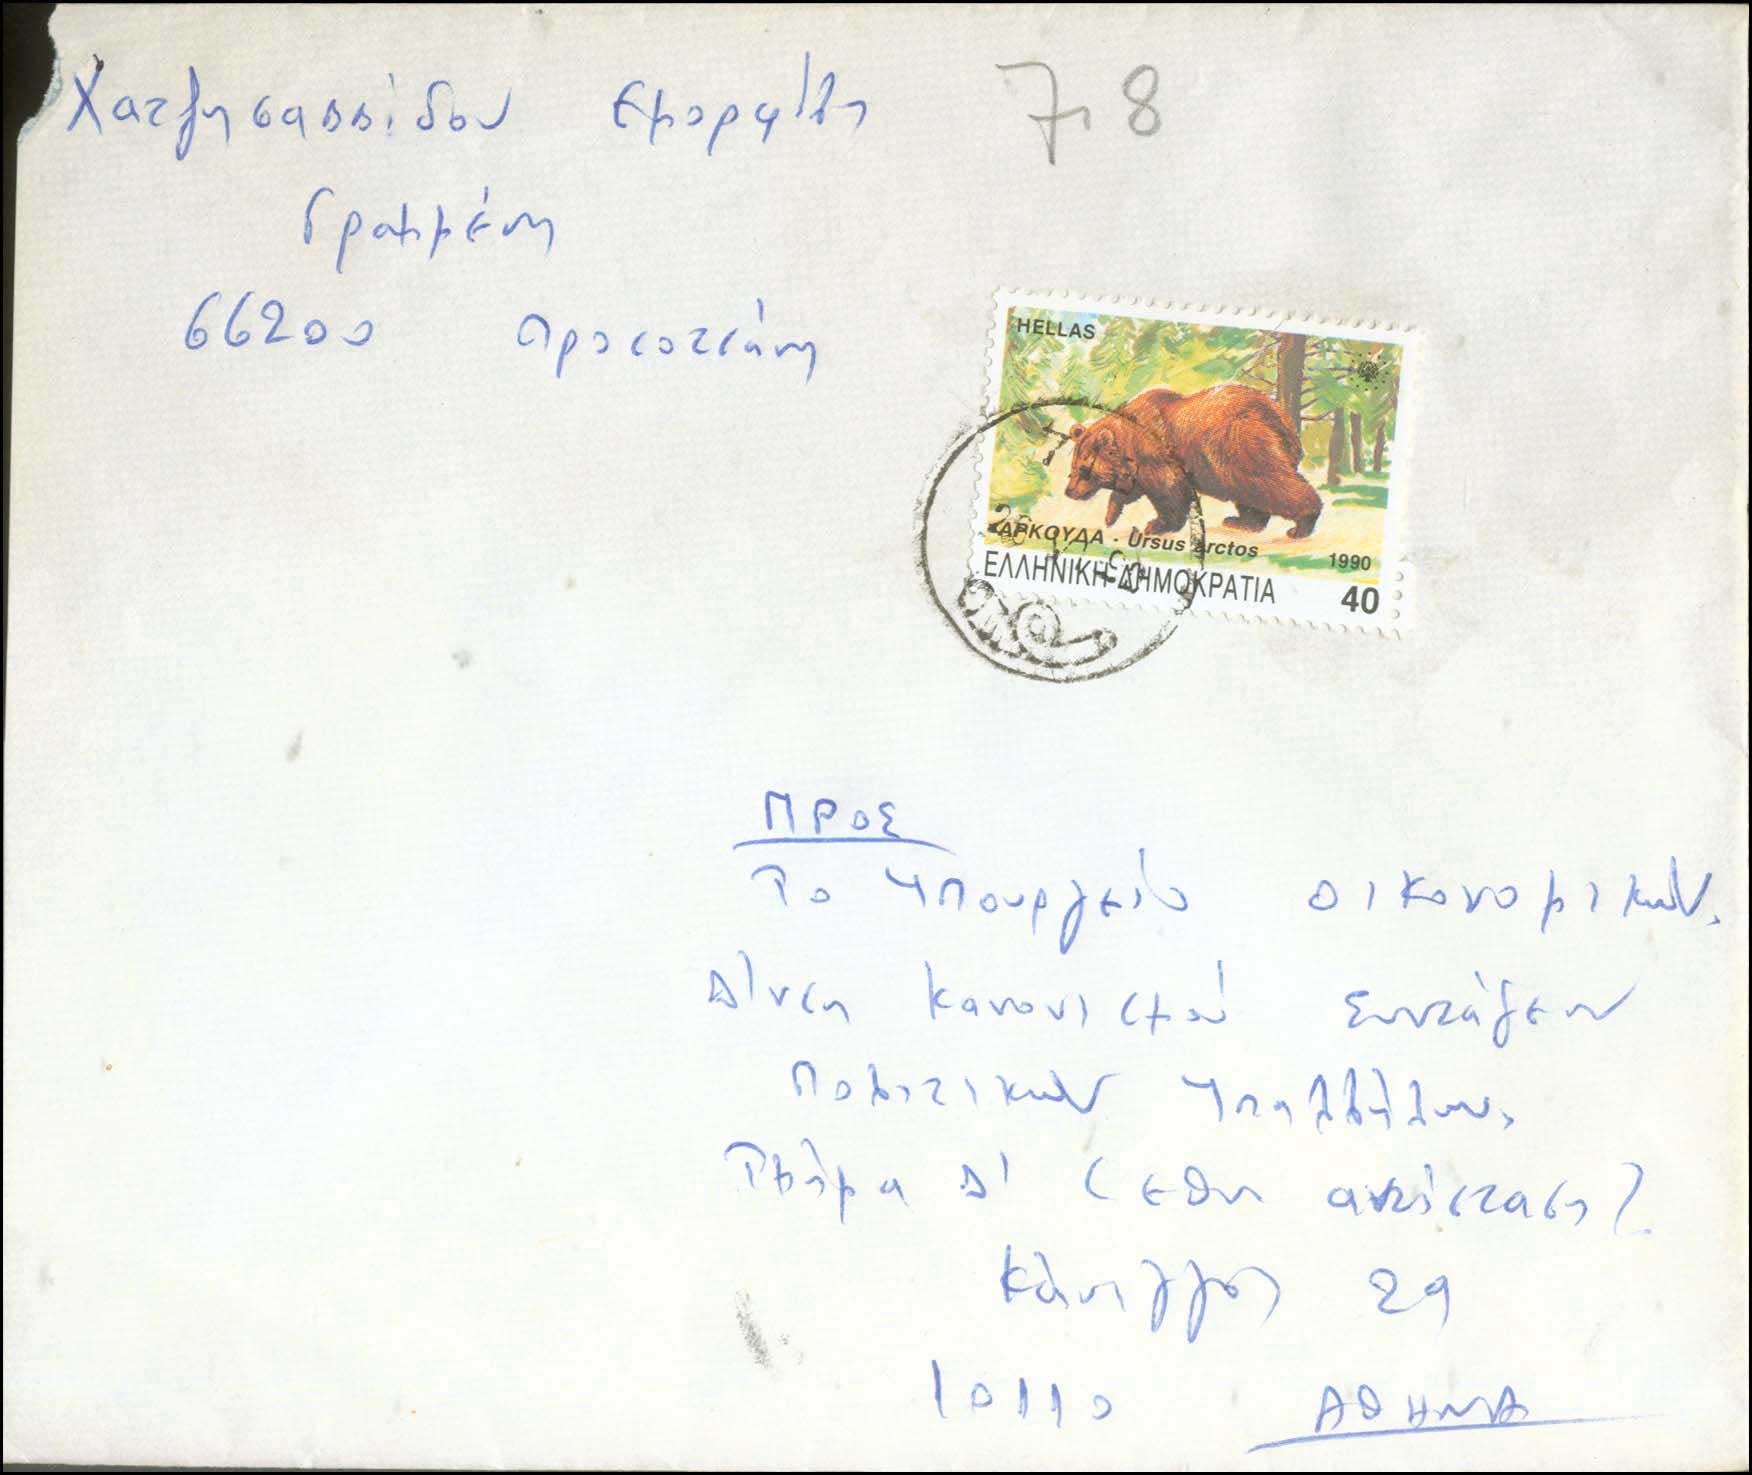 Χατζησαββίδου Εμορφίλη
Γραμμένη
66200 Προσοτσάνη
7.8
HELLAS
ΑΡΚΟΥΔΑ - Ursus arctos
1990
ΕΛΛΗΝΙΚΗ ΔΗΜΟΚΡΑΤΙΑ
40
ΠΡΟΣ
Το Υπουργείο Οικονομικών.
Δ/νση Κανονισμού Συντάξεων
Πολιτικών Υπαλλήλων.
Τμήμα Δ' (Εθν αντίσταση)
Κάνιγγος 29
10110 ΑΘΗΝΑ